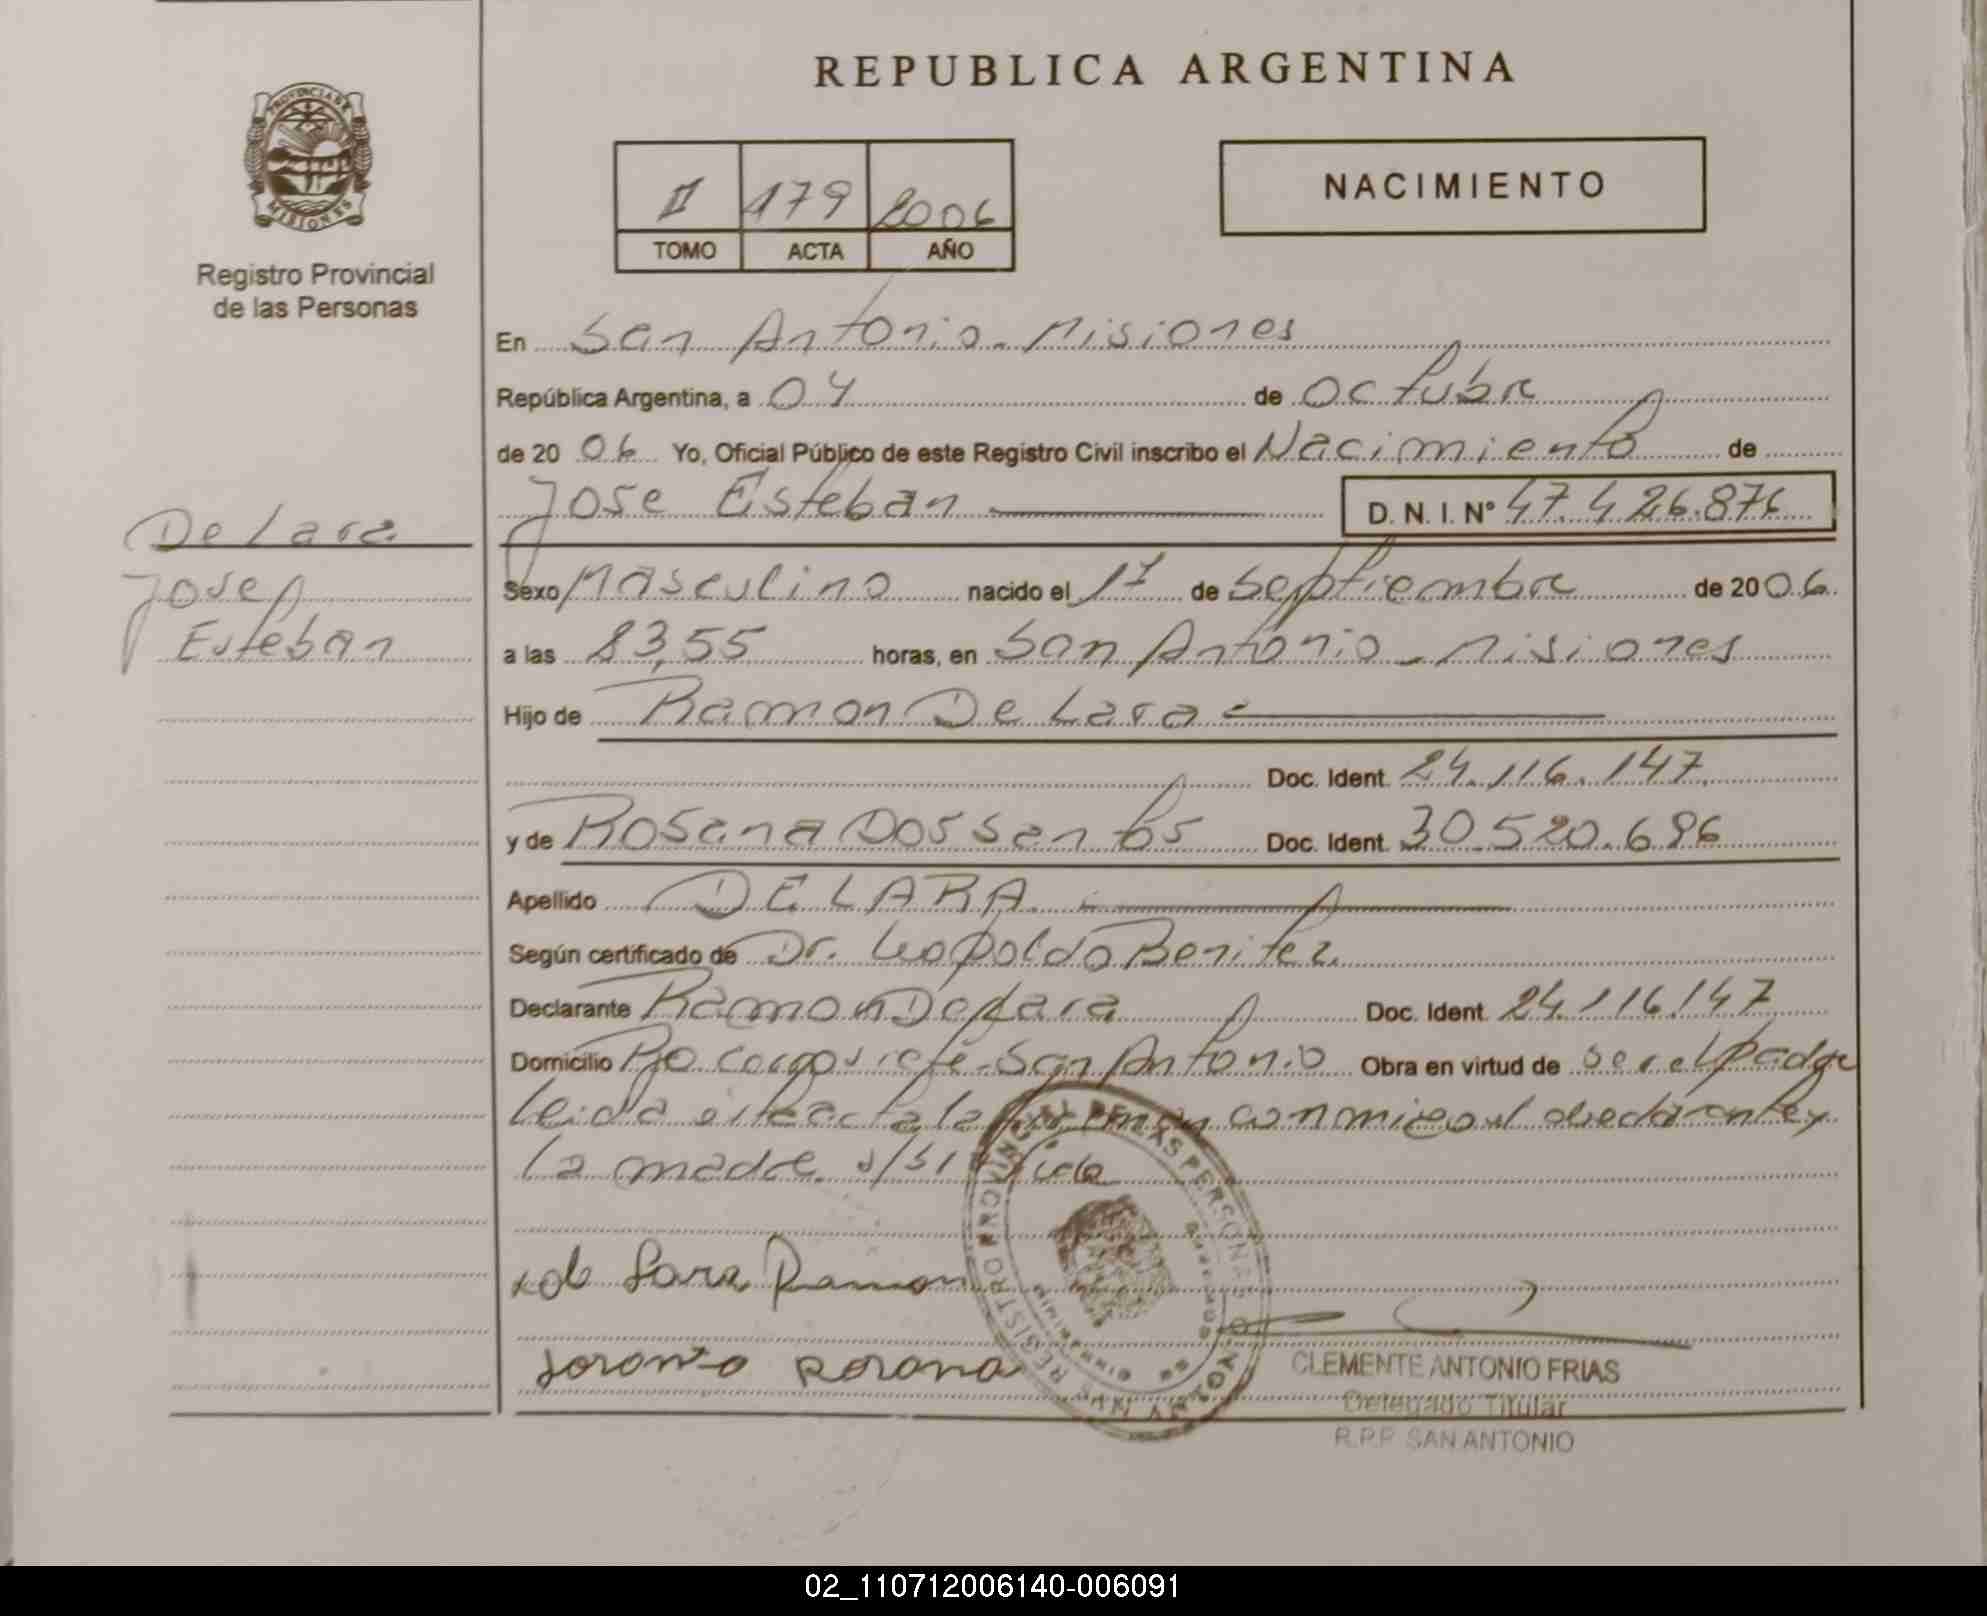 REPUBLICA ARGENTINA
PROVINCIA DE
MISIONES
Registro Provincial
de las Personas
II 179 2006
TOMO ACTA AÑO
NACIMIENTO
En San Antonio - Misiones
República Argentina, a 04 de Octubre
de 20 06 Yo, Oficial Público de este Registro Civil inscribo el Nacimiento de
Jose Esteban D. N. I. N° 47.426.876
De Lara
Jose
Esteban
Sexo Masculino nacido el de Septiembre de 20 06
a las 23,55 horas, en San Antonio - Misiones
Hijo de Ramon De Lara
Doc. Ident. 24.116.147
y de Rosana Dos Santos Doc. Ident. 30.520.686
Apellido DE LARA
Según certificado de Dr. Leopoldo Benitez
Declarante Ramon De Lara Doc. Ident. 24.116.147
Domicilio San Antonio Obra en virtud de ser el padre
Leida el acta la firman conmigo el declarante y
la madre
de Lara Ramon
Rosana
REGISTRO PROVINCIAL DE LAS PERSONAS
CLEMENTE ANTONIO FRIAS
Delegado Titular
R.P.P. SAN ANTONIO
02_110712006140-006091